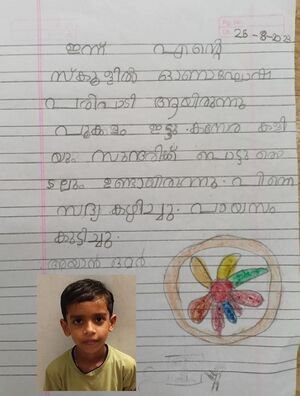 25-8-2023
ഇന്ന് എന്റെ
സ്കൂളിൽ ഓണാഘോഷ
പരിപാടി ആയിരുന്നു
പൂക്കളം ഇട്ടു. കസേര കളി
യും സുന്ദരിക്ക് പൊട്ടു തൊ
ടലും ഉണ്ടായിരുന്നു. പിന്നെ
സദ്യ കഴിച്ചു. പായസം
കുടിച്ചു.